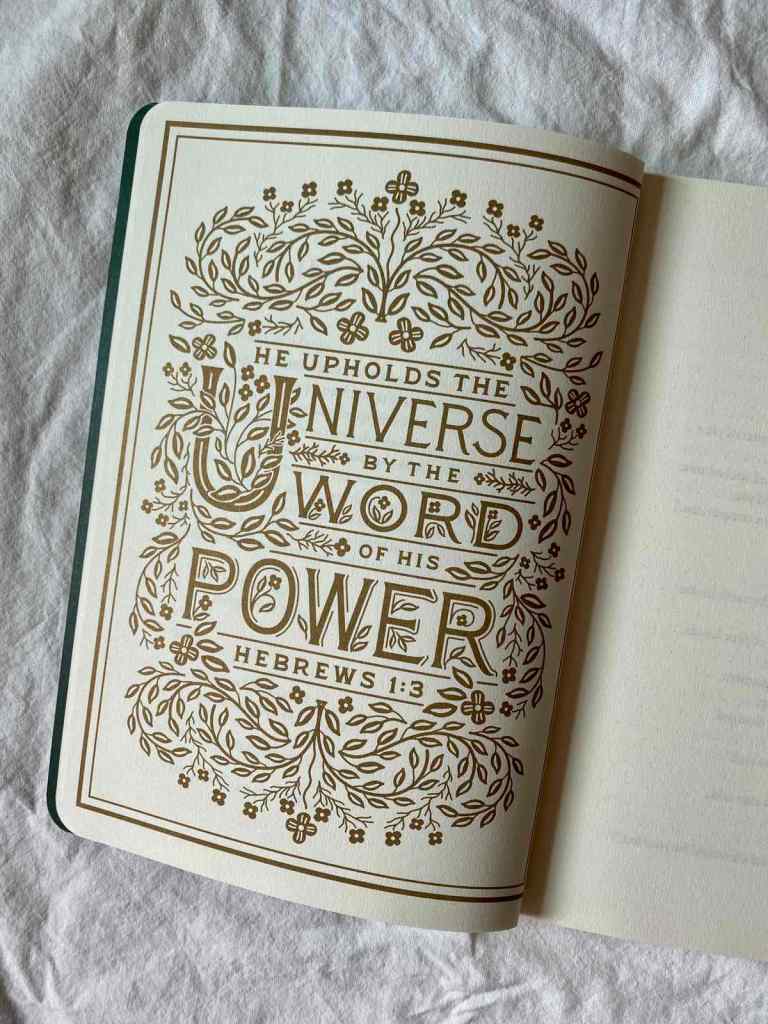 HE UPHOLDS THE
UNIVERSE
BY THE
WORD
OF HIS
POWER
HEBREWS 1:3